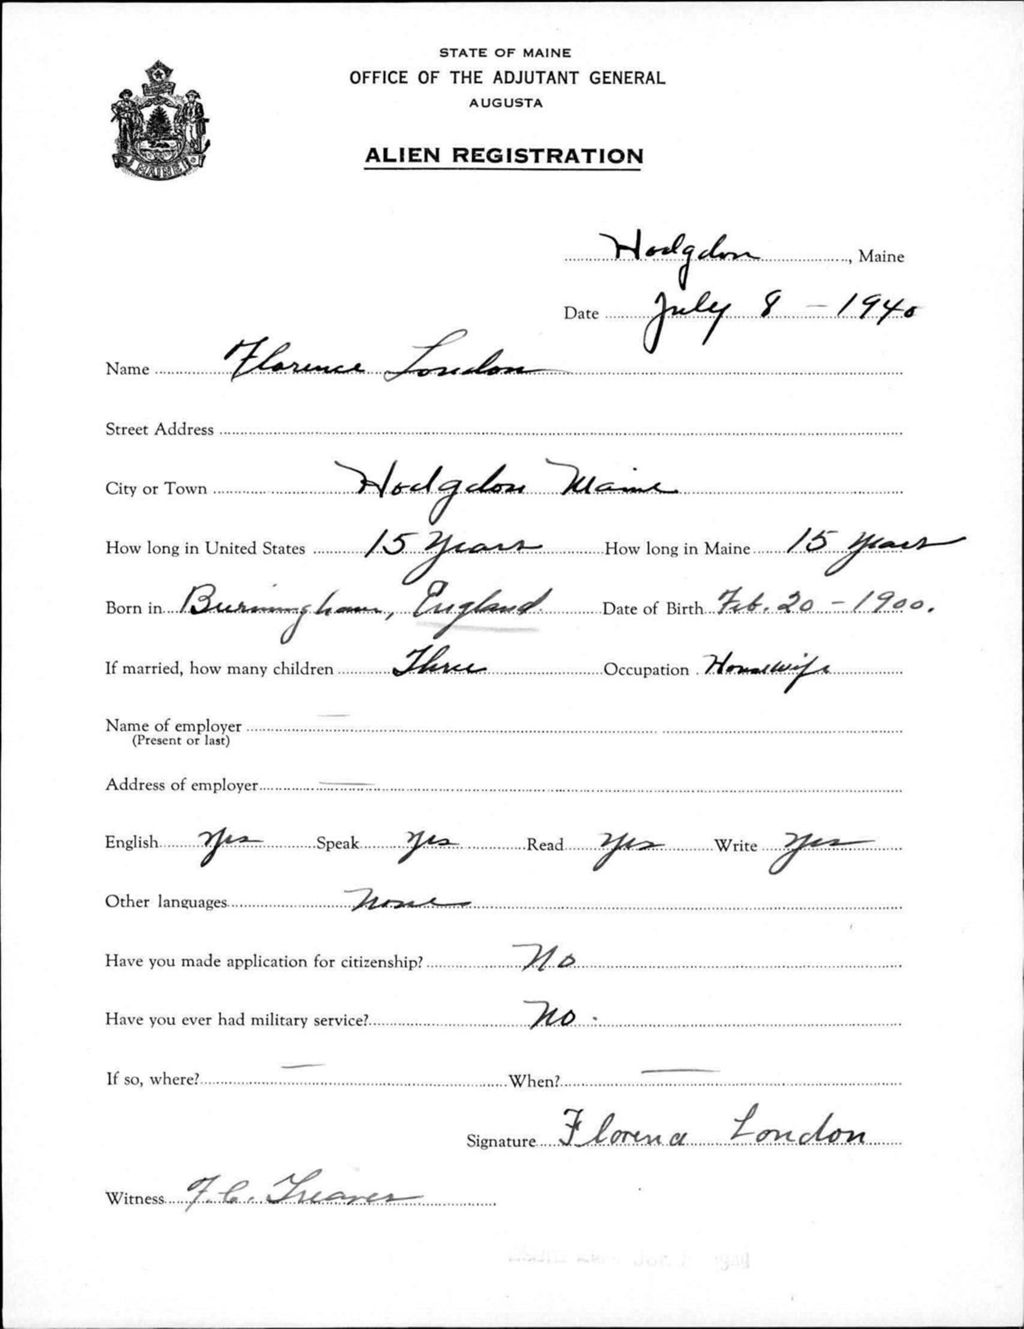 STATE OF MAINE
OFFICE OF THE ADJUTANT GENERAL
AUGUSTA
ALIEN REGISTRATION
MAINE
Hodgdon, Maine
Date July 8 - 1940
Name Florence London
Street Address
City or Town Hodgdon Maine
How long in United States 15 Years How long in Maine 15 Years
Born in Burmingham, England Date of Birth Feb. 20 - 1900.
If married, how many children Three Occupation Housewife
Name of employer
(Present or last)
Address of employer
English Yes Speak Yes Read Yes Write Yes
Other languages None
Have you made application for citizenship? No
Have you ever had military service? No.
If so, where? When?
Signature Florence London
Witness F. C. Treaves